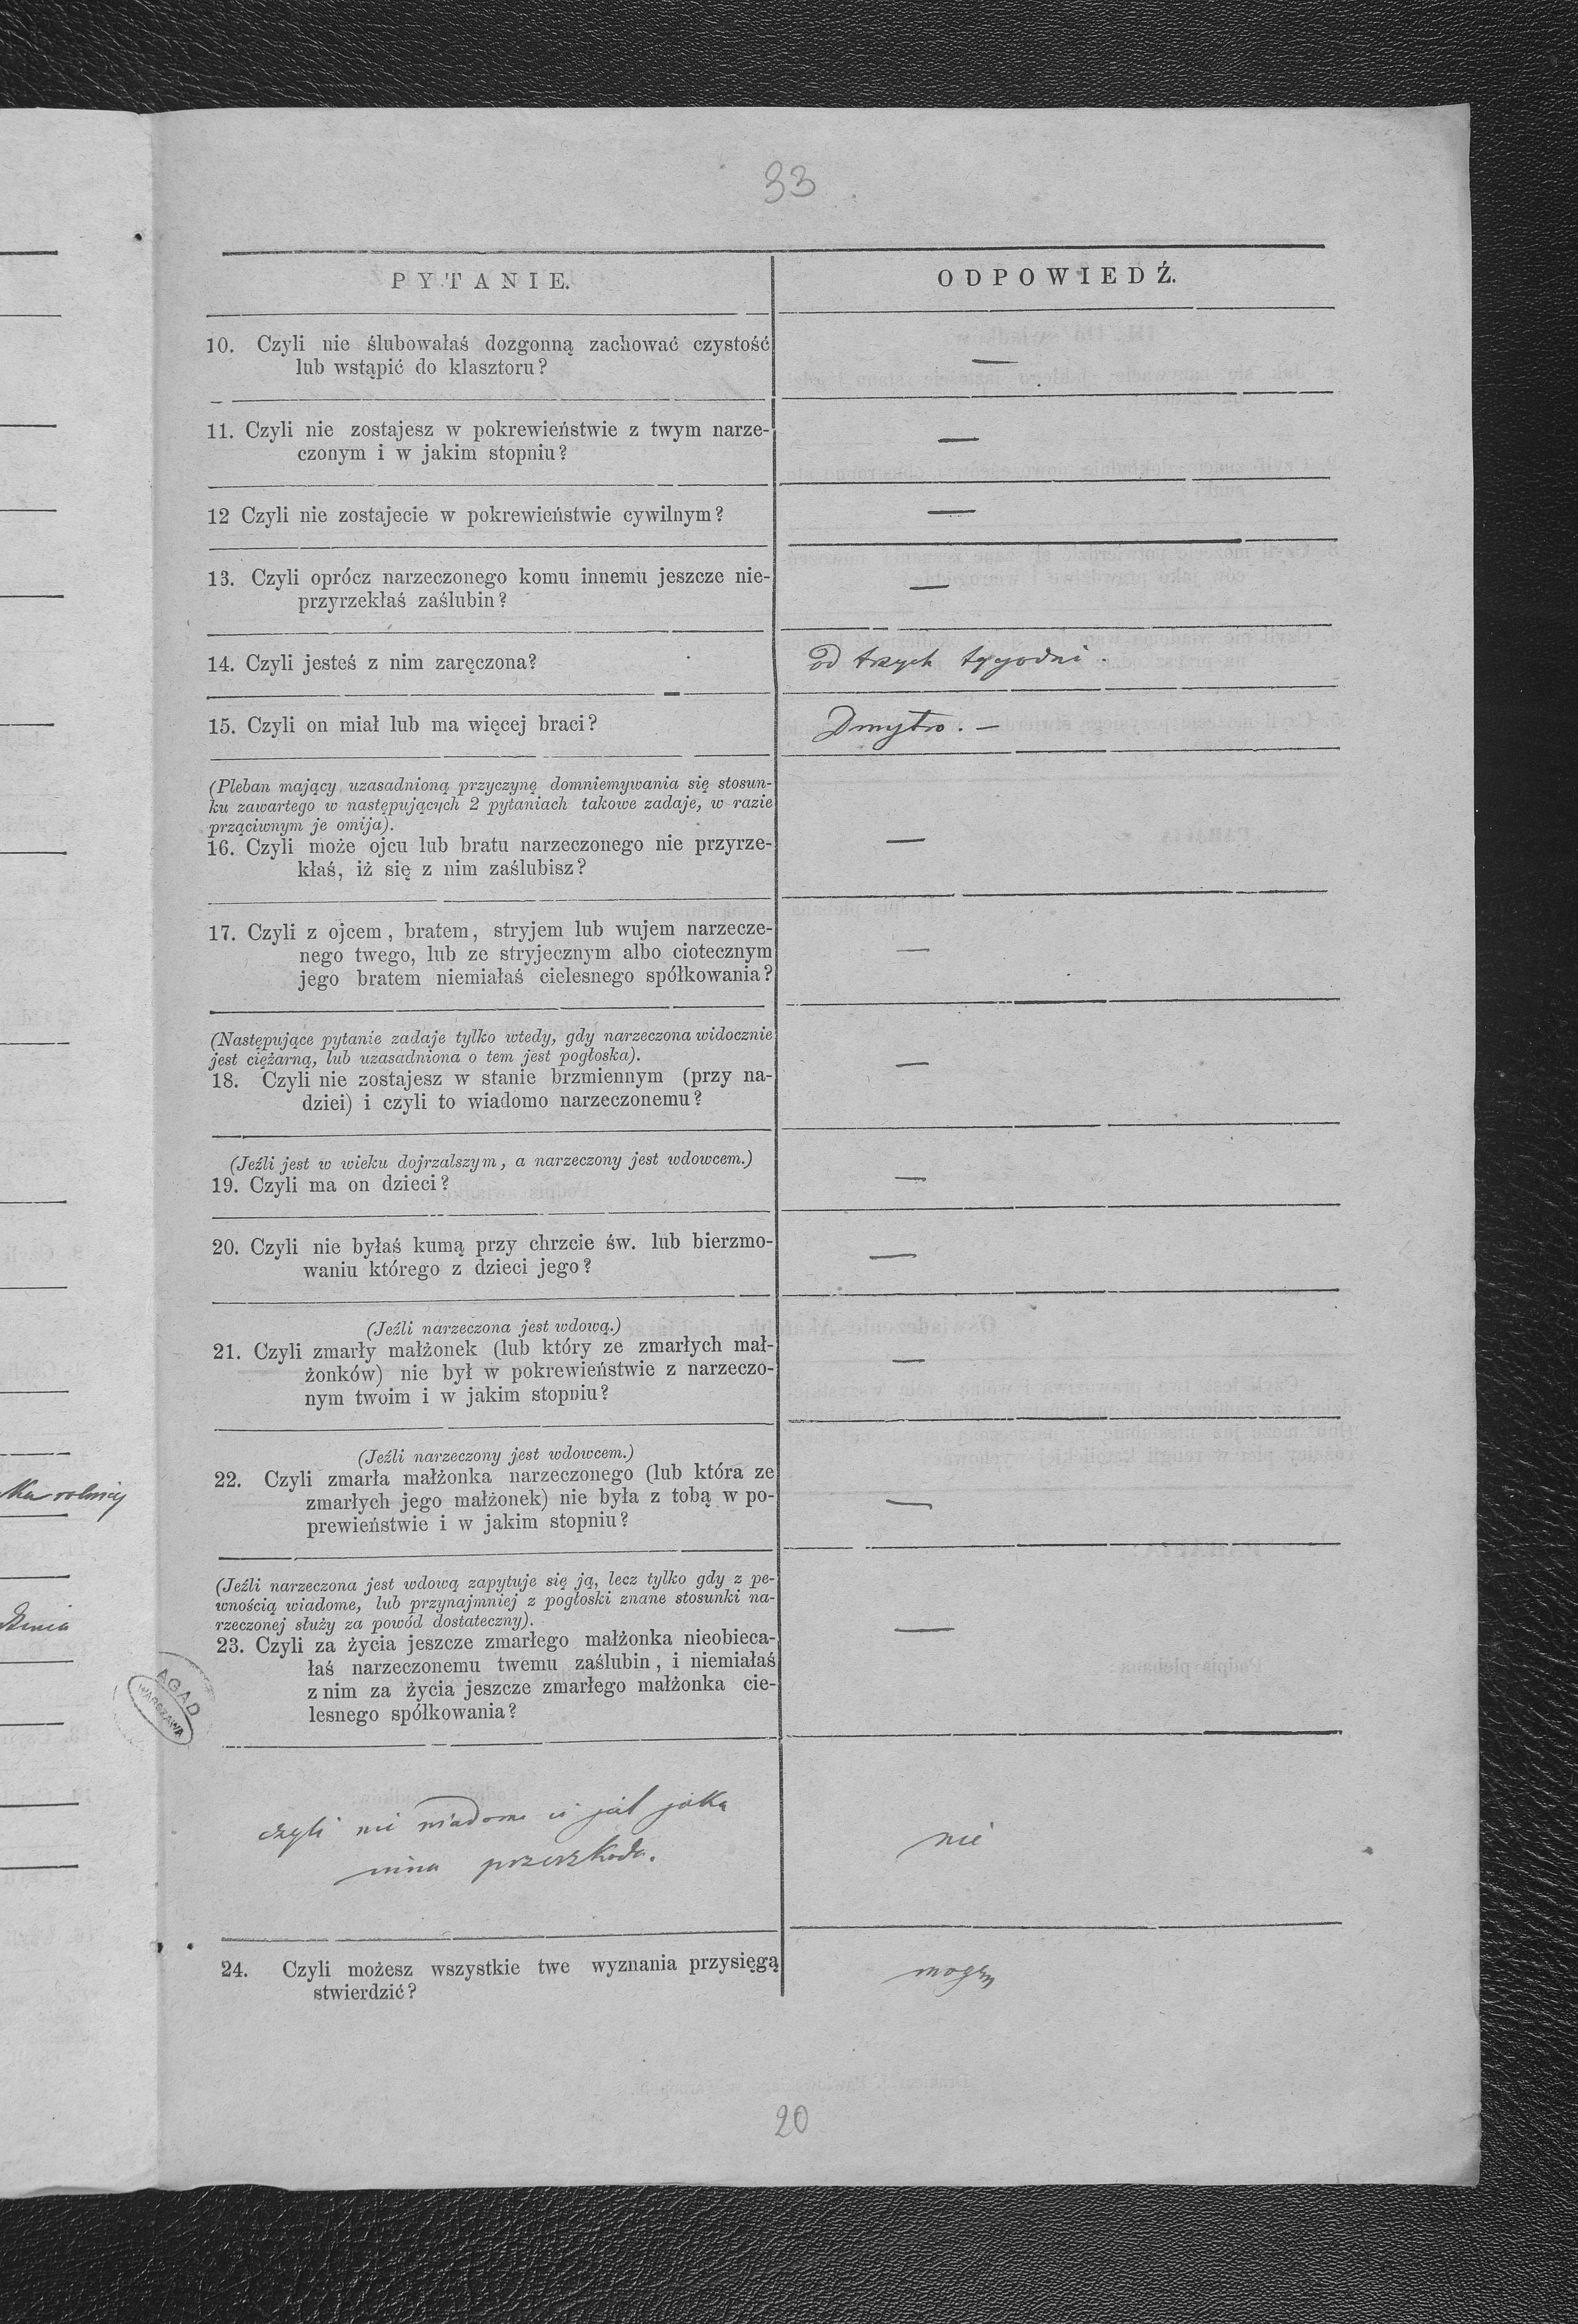 33
PYTANIE.
ODPOWIEDŹ.
10. Czyli nie ślubowałaś dozgonną zachować czystość
lub wstąpić do klasztoru?
—
11. Czyli nie zostajesz w pokrewieństwie z twym narze-
czonym i w jakim stopniu?
—
12 Czyli nie zostajecie w pokrewieństwie cywilnym?
—
13. Czyli oprócz narzeczonego komu innemu jeszcze nie-
przyrzekłaś zaślubin?
—
14. Czyli jesteś z nim zaręczona?
od trzych tygodni.
15. Czyli on miał lub ma więcej braci?
Dmytro. —
(Pleban mający uzasadnioną przyczynę domniemywania się stosun-
ku zawartego w następujących 2 pytaniach takowe zadaje, w razie
prząciwnym je omija).
16. Czyli może ojcu lub bratu narzeczonego nie przyrze-
kłaś, iż się z nim zaślubisz?
—
17. Czyli z ojcem, bratem, stryjem lub wujem narzecze-
nego twego, lub ze stryjecznym albo ciotecznym
jego bratem niemiałaś cielesnego spółkowania?
—
(Następujące pytanie zadaje tylko wtedy, gdy narzeczona widocznie
jest ciężarną, lub uzasadniona o tem jest pogłoska).
18. Czyli nie zostajesz w stanie brzmiennym (przy na-
dziei) i czyli to wiadomo narzeczonemu?
—
(Jeźli jest w wieku dojrzalszym, a narzeczony jest wdowcem.)
19. Czyli ma on dzieci?
—
20. Czyli nie byłaś kumą przy chrzcie św. lub bierzmo-
waniu którego z dzieci jego?
—
(Jeźli narzeczona jest wdową.)
21. Czyli zmarły małżonek (lub który ze zmarłych mał-
żonków) nie był w pokrewieństwie z narzeczo-
nym twoim i w jakim stopniu?
—
(Jeźli narzeczony jest wdowcem.)
22. Czyli zmarła małżonka narzeczonego (lub która ze
zmarłych jego małżonek) nie była z tobą w po-
prewieństwie i w jakim stopniu?
—
(Jeźli narzeczona jest wdową zapytuje się ją, lecz tylko gdy z pe-
wnością wiadome, lub przynajmniej z pogłoski znane stosunki na-
rzeczonej służy za powód dostateczny).
23. Czyli za życia jeszcze zmarłego małżonka nieobieca-
łaś narzeczonemu twemu zaślubin, i niemiałaś
z nim za życia jeszcze zmarłego małżonka cie-
lesnego spółkowania?
—
AGAD
WARSZAWA
czyli nie wiadomo ci jest jaka
inna przeszkoda.
nie
24. Czyli możesz wszystkie twe wyznania przysięgą
stwierdzić?
mogę
20